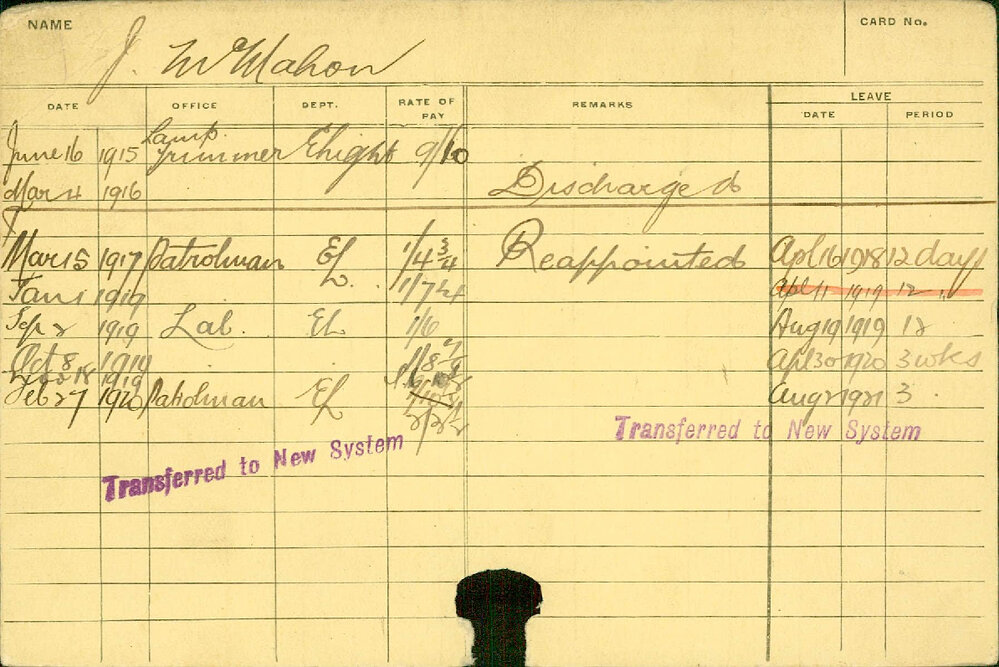 NAME
CARD No.
J. McMahon
DATE OFFICE DEPT. RATE OF PAY REMARKS LEAVE
DATE PERIOD
June 16 1915 Lamp Trimmer Elight 9/
Mar 4 1916 Discharged
Mar 15 1917 Patrolman EL 1/4 3/4 Reappointed Apl 16 1918 12 days
Jan 1 1919 1/7 Apl 11 1919 12 "
Sep 2 1919 Lab. EL 1/6 Aug 19 1919 12
Oct 8 1919 1/8 Apl 30 1920 3 wks
1919
Feb 27 1920 Patrolman EL Aug 2 1921 3
Transferred to New System
Transferred to New System